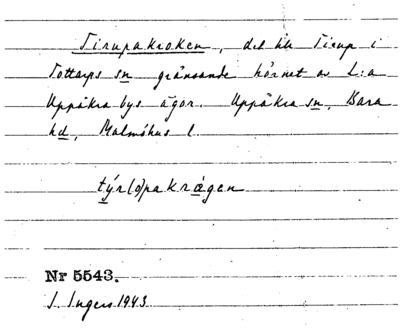 Tirupakroken, det till Tirup i
Tottarps sn gränsande hörnet av L:a
Uppåkra bys ägor. Uppåkra sn, Bara
hd, Malmöhus l.
týr(o)pakrågen
Nr 5543.
I. Ingers 1943